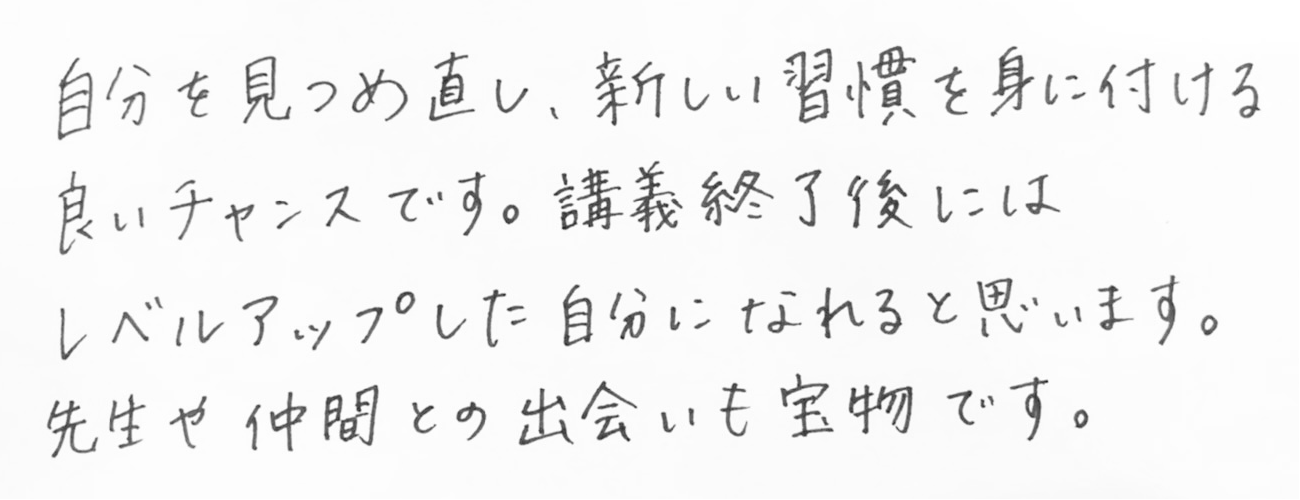 自分を見つめ直し、新しい習慣を身に付ける
良いチャンスです。講義終了後には
レベルアップした自分になれると思います。
先生や仲間との出会いも宝物です。